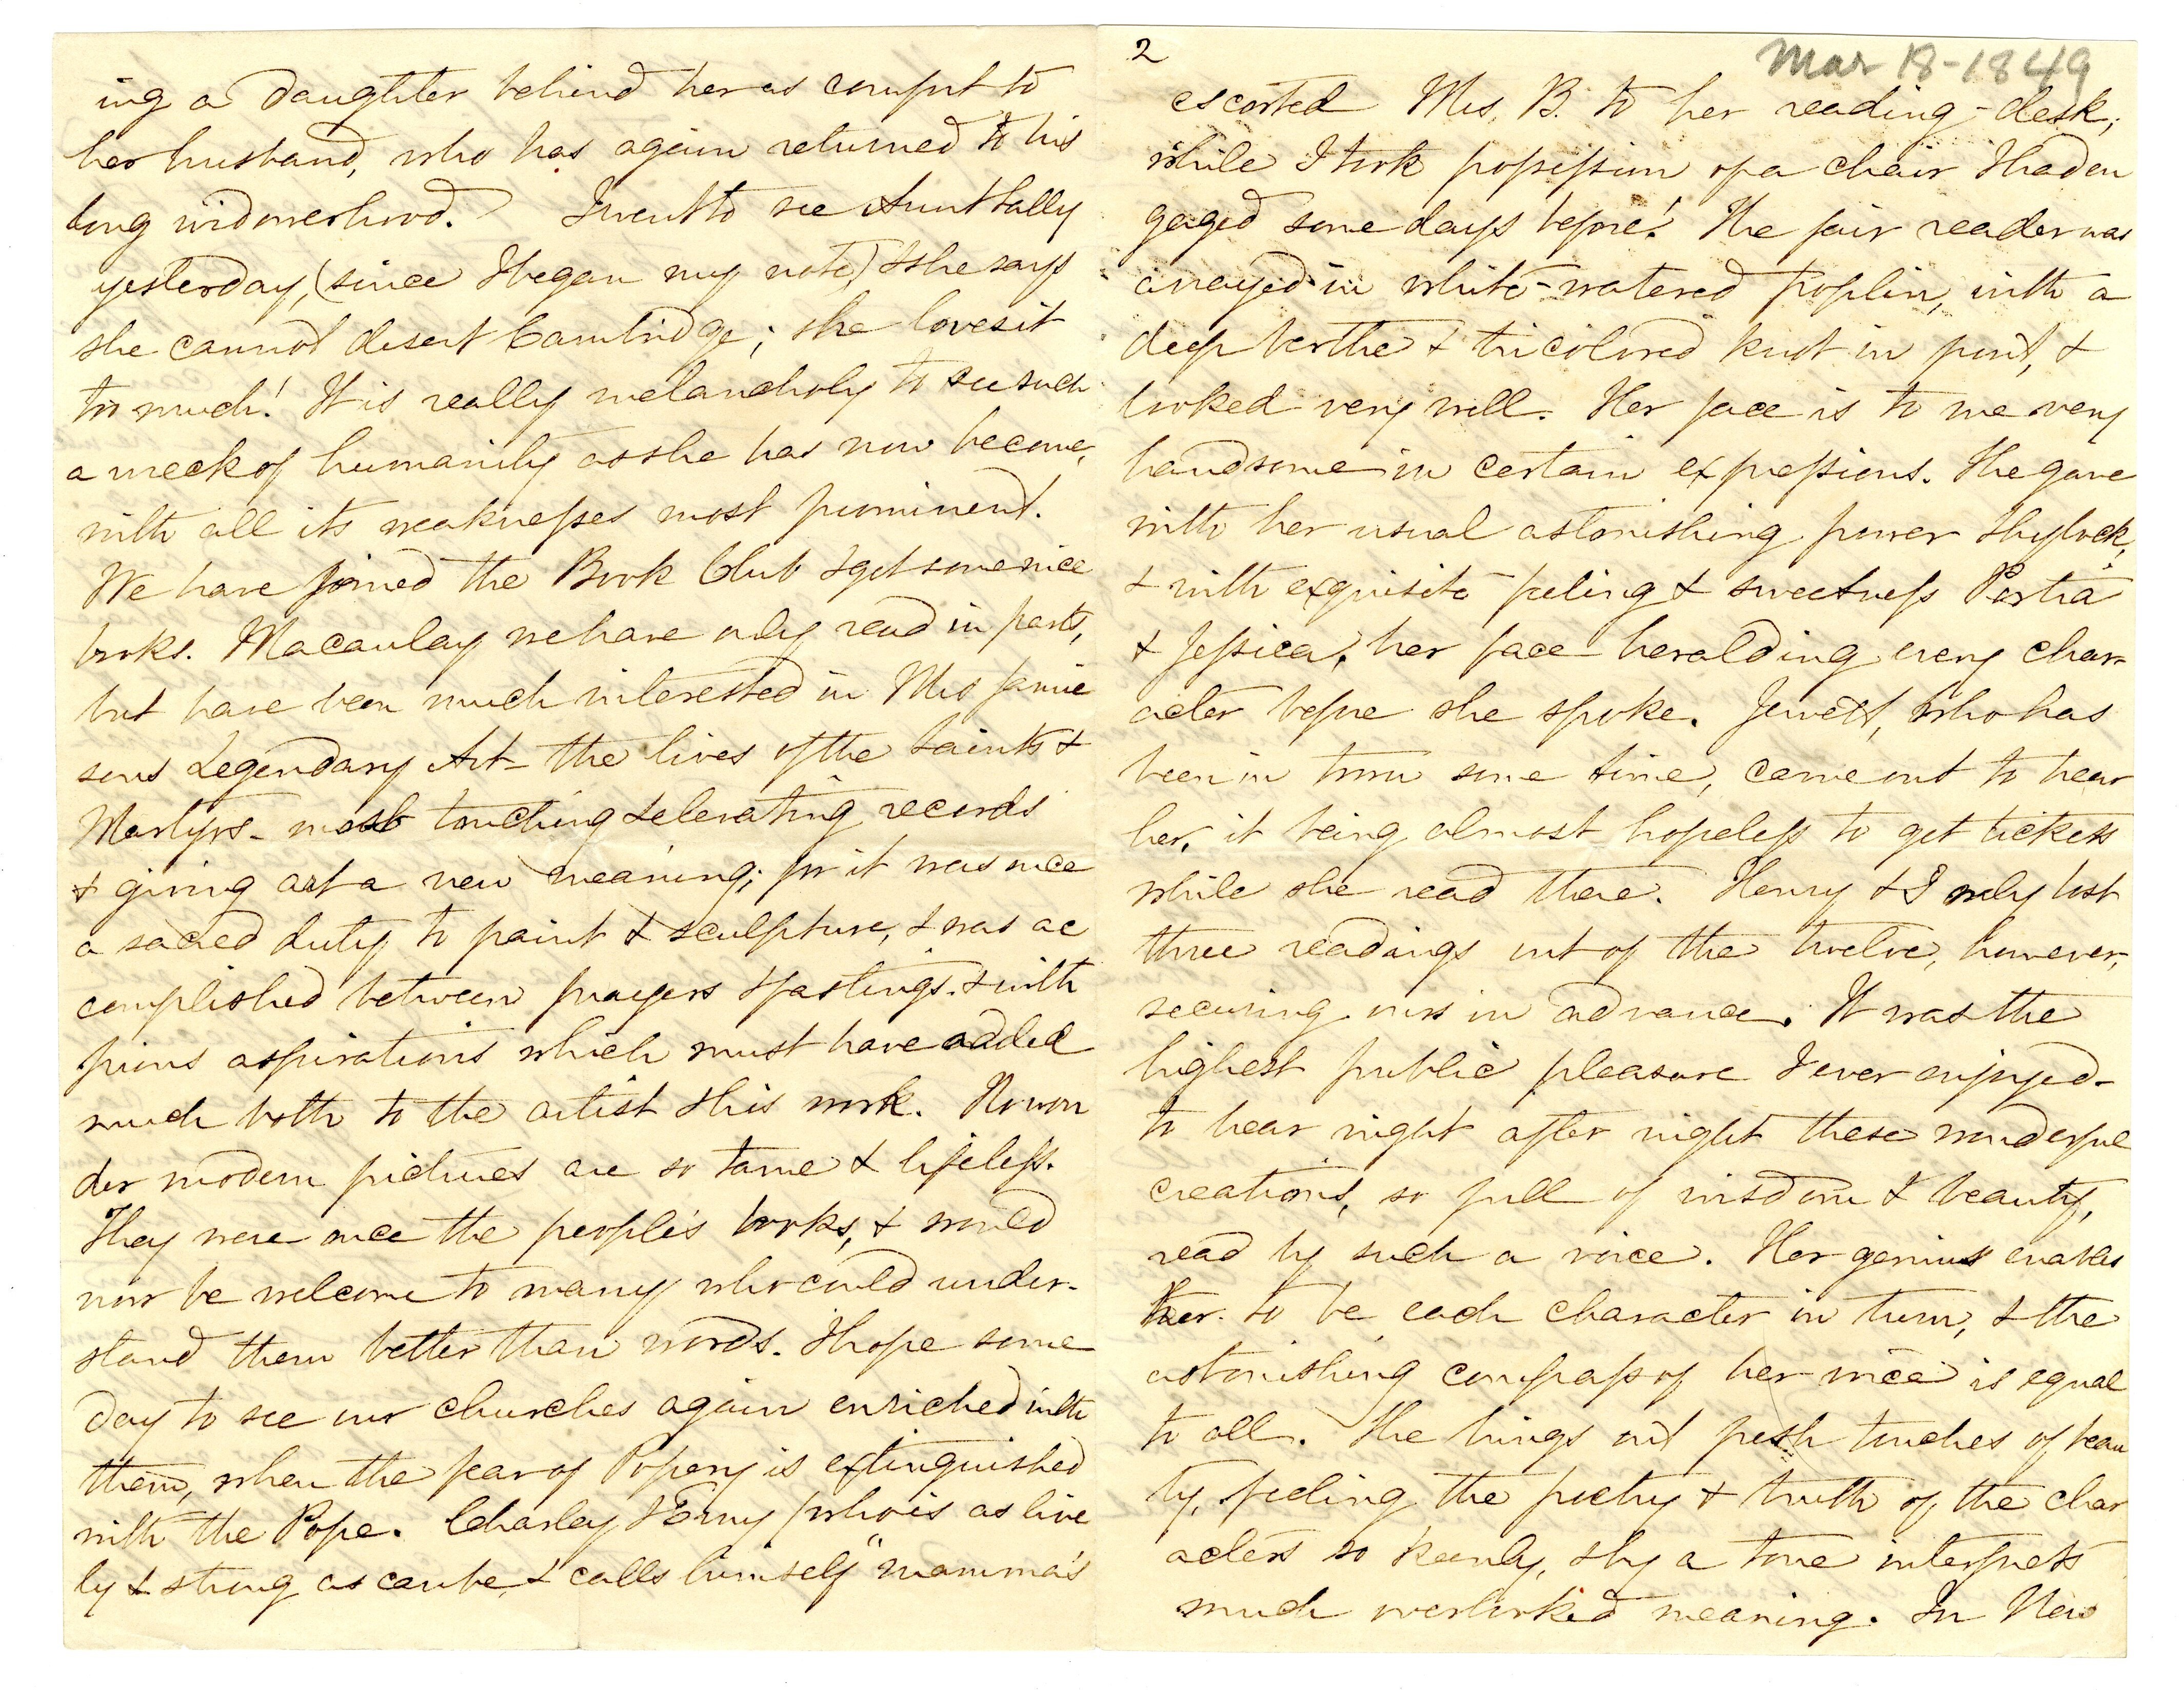 ing a daughter behind her as comfort to
her husband, who has again returned to his
long widowerhood. I went to see Aunt Sally
yesterday, (since I began my note) & she says
she cannot desert Cambridge; she loves it
too much! It is really melancholy to see such
a wreck of humanity as she has now become,
with all its weaknesses most prominent.
We have joined the Book Club & get some nice
books. Macaulay we have only read in parts,
but have been much interested in Mrs Jamie
sons Legendary Art – the lives of the Saints &
Martyrs – most touching & elevating records
& giving art a new meaning; for it was once
a sacred duty to paint & sculpture, & was ac
complished between prayers & fastings. & with
pious aspirations which must have added
much both to the artist & his work. No won
der modern pictures are so tame & lifeless.
They were once the people's books, & would
now be welcome to many who could under-
stand them better than words. I hope some
day to see our churches again enriched with
them, when the fear of Popery is extinguished
with the Pope. Charley & Erny (who is as live
ly & strong as can be, & calls himself "mamma's
2
Mar 18-1849
escorted Mrs. B. to her reading-desk,
while I took possession of a chair I had en
gaged some days before! The fair reader was
arrayed in white-watered poplin, with a
deep berthe & tricolored knot in front, &
looked very well. Her face is to me very
handsome in certain expressions. She gave
with her usual astonishing power Shylock,
& with exquisite feeling & sweetness Portia
& Jessica, her face heralding every char-
acter before she spoke. Jewett, who has
been in town some time, came out to hear
her, it being almost hopeless to get tickets
while she read there. Henry & I only lost
three readings out of the twelve, however,
securing ours in advance. It was the
highest public pleasure I ever enjoyed –
to hear night after night these wonderful
creations, so full of wisdom & beauty,
read by such a voice. Her genius enables
her to be each character in turn, & the
astonishing compass of her voice is equal
to all. She brings out fresh touches of beau
ty, feeling the poetry & truth of the char
acters so keenly, & by a tone interprets
much overlooked meaning. In New